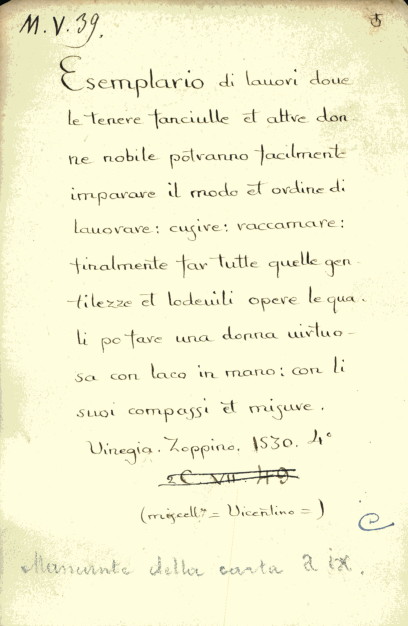 M. V. 39.
5
Esemplario di lauori doue
le tenere fanciulle et altre don
ne nobile potranno facilmente
imparare il modo et ordine di
lauorare: cusire: raccamare:
finalmente far tutte quelle gen
tilezze et lodeuili opere le qua.
li po fare una donna uirtuo-
sa con laco in mano: con li
suoi compassi et misure.
Vinegia. Zoppino. 1530. 4°
2 C. VII. 49
(miscell.ª = Vicentino = )
C
Mancante della carta A ix.